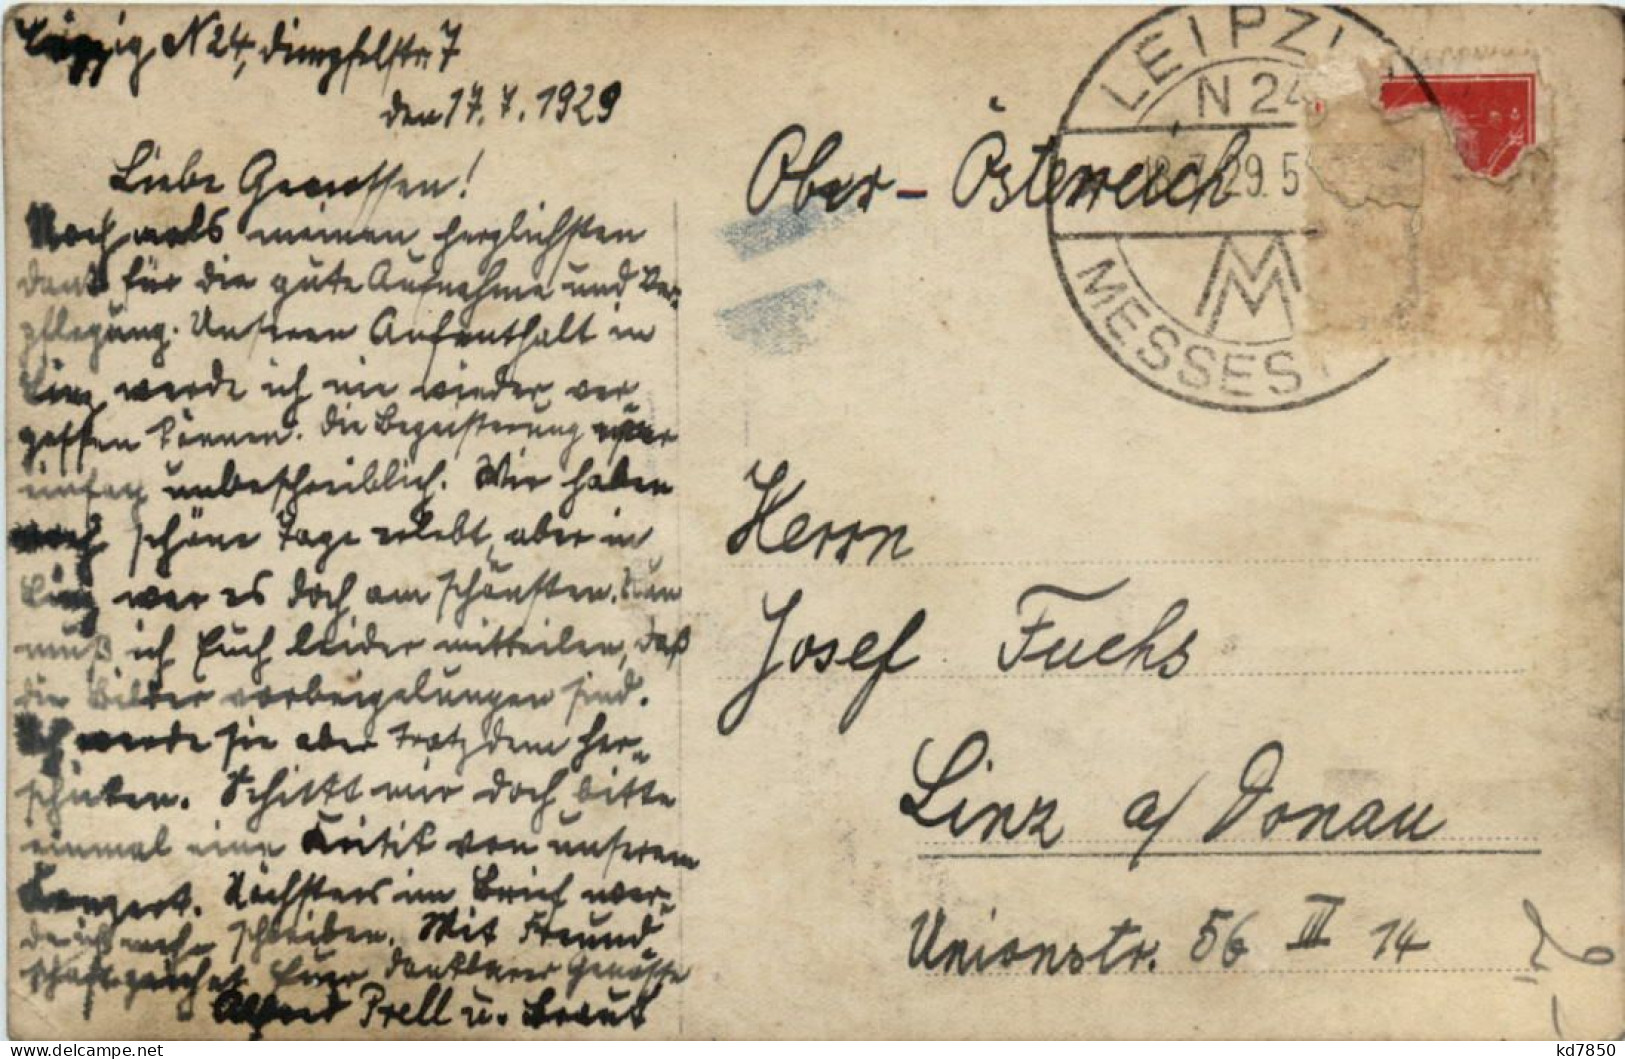 Leipzig N 24, Dimpfelstr. 7
den 17. 7. 1929
Liebe Genossen!
Nochmals meinen herzlichsten
Dank für die gute Aufnahme und Ver-
pflegung. Unseren Aufenthalt in
Linz werde ich nie wieder ver-
gessen können. Die Begeisterung war
einfach unbeschreiblich. Wir haben
noch schöne Tage erlebt, aber in
Linz war es doch am schönsten. Nun
muß ich Euch leider mitteilen, daß
die Bilder vorbeigelungen sind.
Ich werde sie aber trotzdem her-
schicken. Schickt mir doch bitte
einmal eine Kritik von unserem
Konzert. Nächstens im Brief wer-
de ich mehr schreiben. Mit Freund-
schaft zeichnet Euer dankbarer Genosse
Alfred Prell u. Braut
LEIPZI
N 24
18.7.29. 5
M
MESSES
Ober-Österreich
Herrn
Josef Fuchs
Linz a/ Donau
Unionstr. 56 III 14
delcampe.net
kd7850